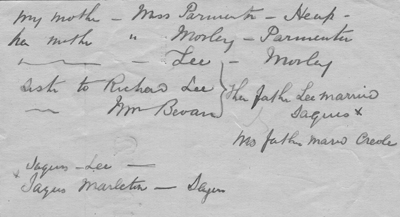 my mother – Miss Parmenter – Heap –
her mother " Morley – Parmenter
" – Lee – Morley
Sister to Richard Lee } Her father Lee married
" Wm Bevan } Jaques x
his father married Creole
Jaques – Lee –
x Jaques Marleton – Jaques